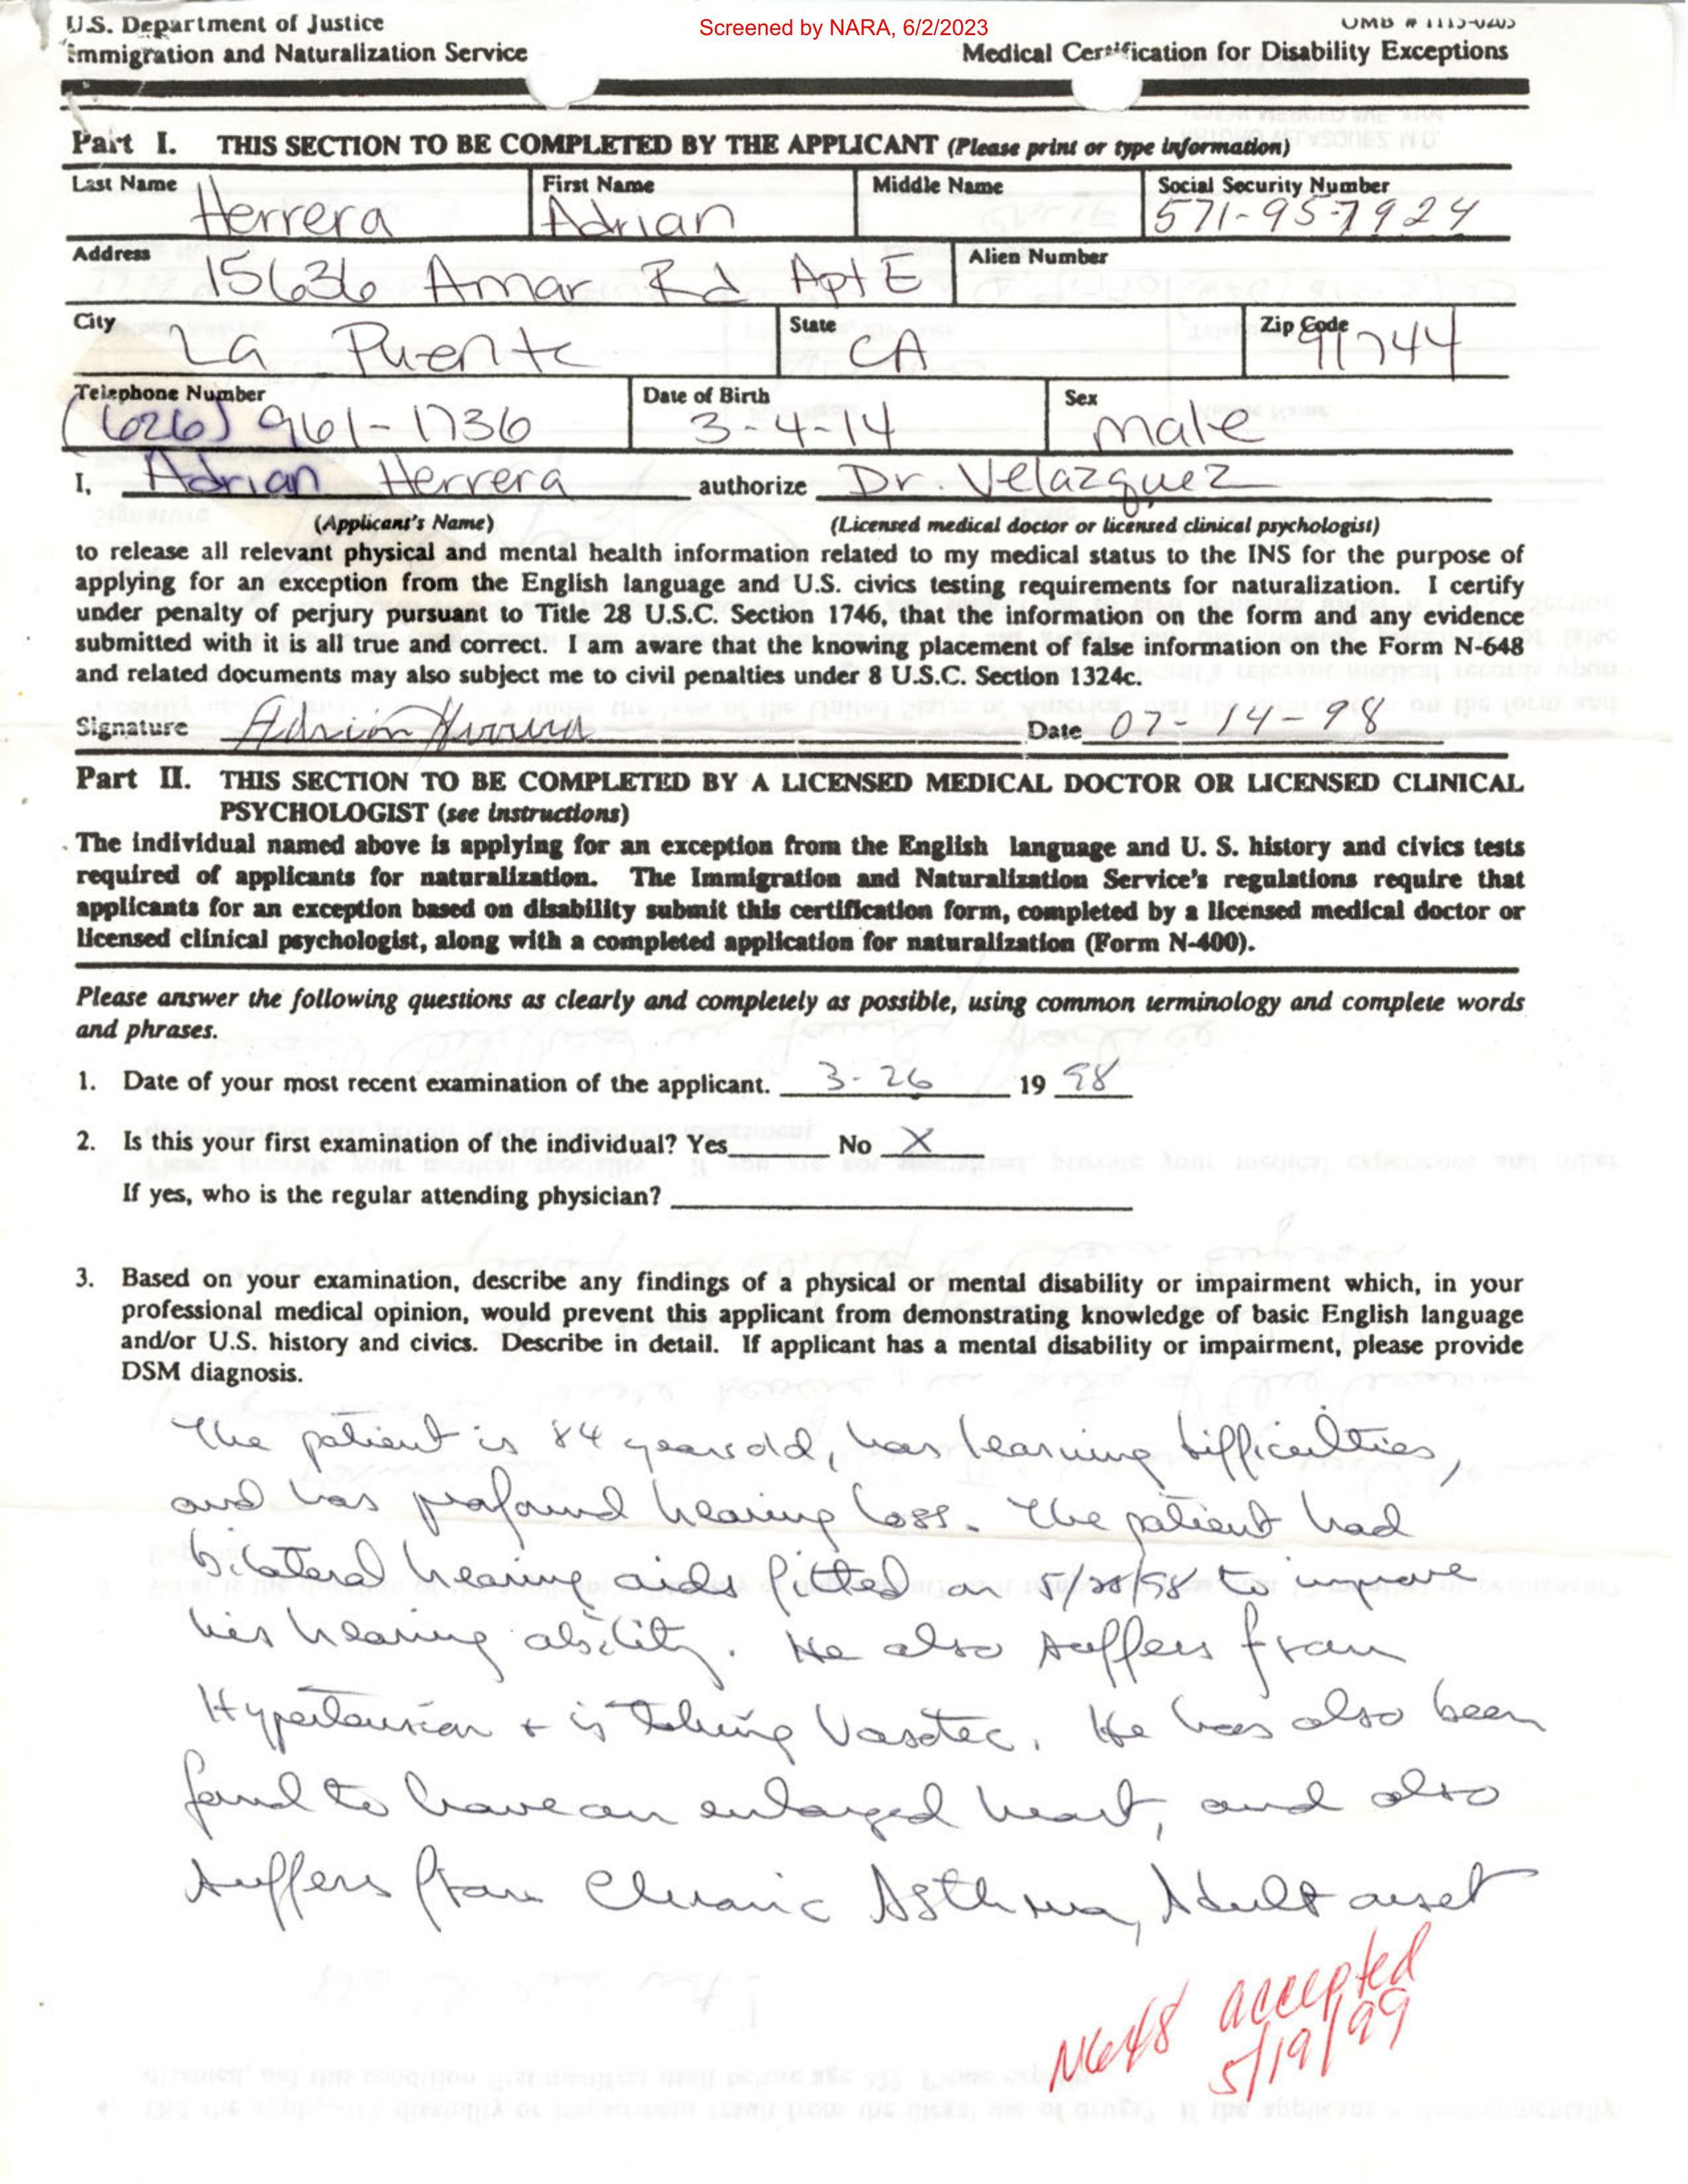 Screened by NARA, 6/2/2023
U.S. Department of Justice
Immigration and Naturalization Service
OMB # 1115-0205
Medical Certification for Disability Exceptions
Part I. THIS SECTION TO BE COMPLETED BY THE APPLICANT (Please print or type information)
Last Name Herrera First Name Adrian Middle Name Social Security Number 571-95-7924
Address 15636 Amar Rd Apt E Alien Number
City La Puente State CA Zip Code 91744
Telephone Number (626) 961-1736 Date of Birth 3-4-14 Sex male
I, Adrian Herrera authorize Dr. Velazquez
(Applicant's Name) (Licensed medical doctor or licensed clinical psychologist)
to release all relevant physical and mental health information related to my medical status to the INS for the purpose of
applying for an exception from the English language and U.S. civics testing requirements for naturalization. I certify
under penalty of perjury pursuant to Title 28 U.S.C. Section 1746, that the information on the form and any evidence
submitted with it is all true and correct. I am aware that the knowing placement of false information on the Form N-648
and related documents may also subject me to civil penalties under 8 U.S.C. Section 1324c.
Signature Adrian Herrera Date 07-14-98
Part II. THIS SECTION TO BE COMPLETED BY A LICENSED MEDICAL DOCTOR OR LICENSED CLINICAL
PSYCHOLOGIST (see instructions)
The individual named above is applying for an exception from the English language and U. S. history and civics tests
required of applicants for naturalization. The Immigration and Naturalization Service's regulations require that
applicants for an exception based on disability submit this certification form, completed by a licensed medical doctor or
licensed clinical psychologist, along with a completed application for naturalization (Form N-400).
Please answer the following questions as clearly and completely as possible, using common terminology and complete words
and phrases.
1. Date of your most recent examination of the applicant. 3-26 19 98
2. Is this your first examination of the individual? Yes No X
If yes, who is the regular attending physician?
3. Based on your examination, describe any findings of a physical or mental disability or impairment which, in your
professional medical opinion, would prevent this applicant from demonstrating knowledge of basic English language
and/or U.S. history and civics. Describe in detail. If applicant has a mental disability or impairment, please provide
DSM diagnosis.
The patient is 84 years old, has hearing difficulties,
and has profound hearing loss. The patient had
bilateral hearing aids fitted on 5/28/98 to improve
his hearing ability. He also suffers from
Hypertension + is taking Vasotec. He has also been
found to have an enlarged heart, and also
suffers from Chronic Asthma, Adult onset
N648 accepted
5/19/99